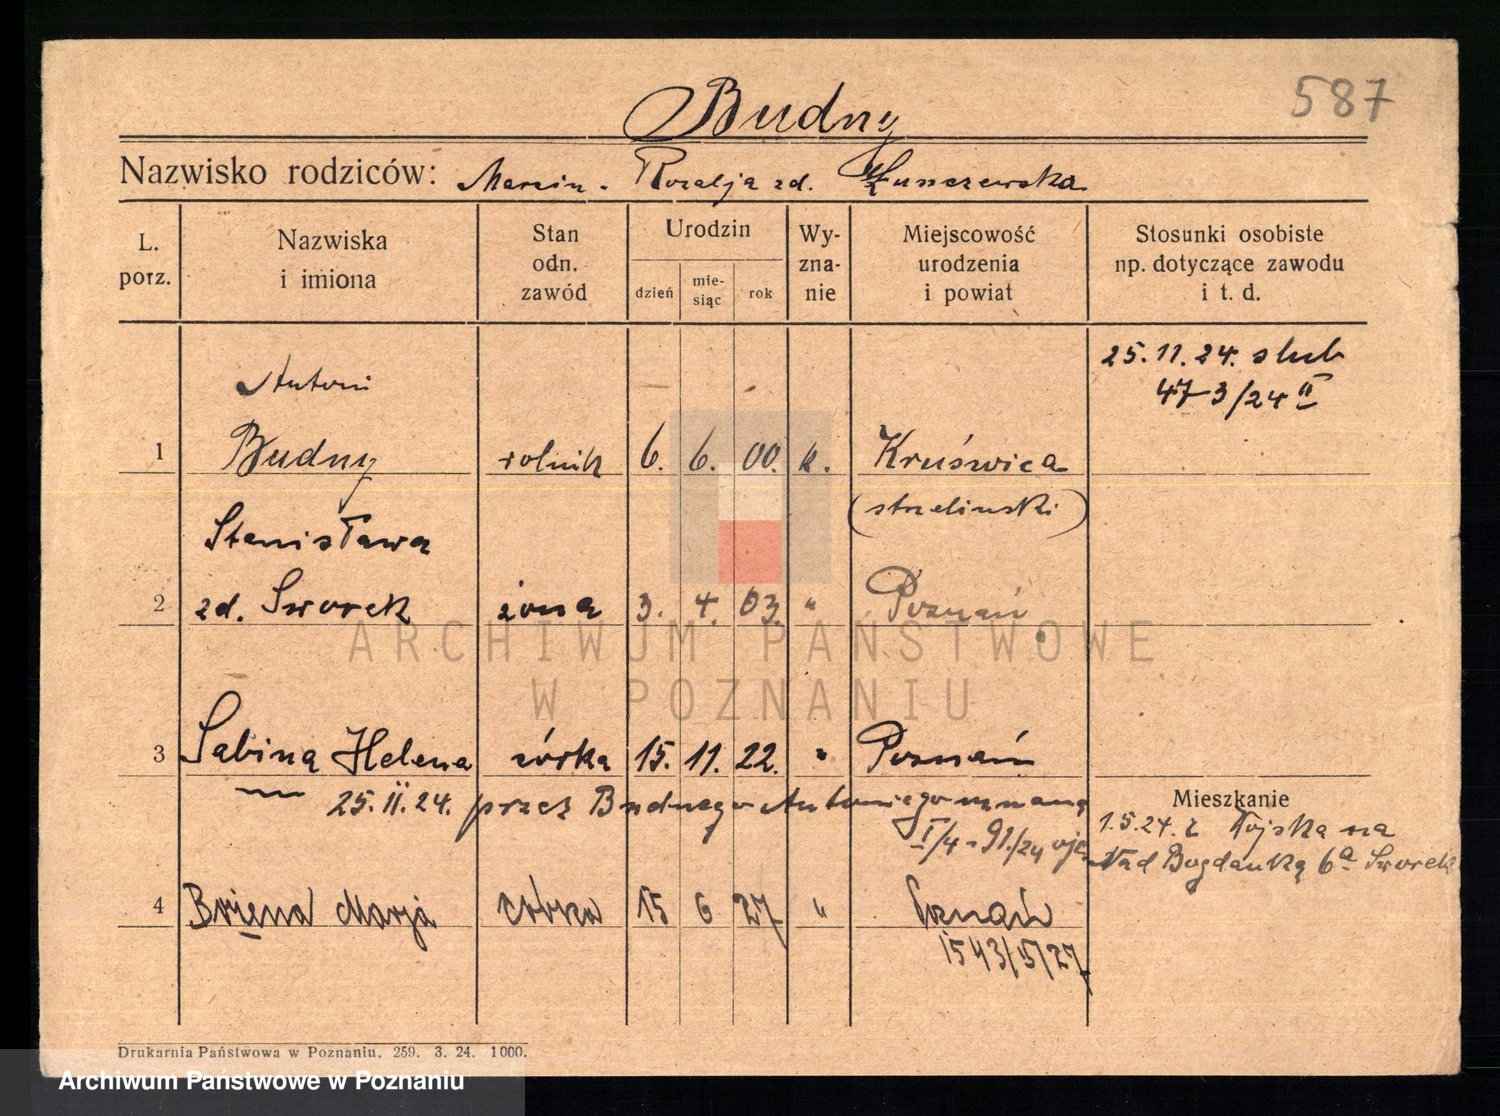 587
Budny
Nazwisko rodziców: Marcin - Rozalja zd. Łuszczewska
L. porz.
Nazwiska i imiona
Stan odn. zawód
Urodzin
dzień
mie-siąc
rok
Wy-zna-nie
Miejscowość urodzenia i powiat
Stosunki osobiste np. dotyczące zawodu i t. d.
25.11.24. slub
47-3/24 II
Antoni
1 Budny rolnik 6. 6. 00. k. Kruświca
(strzelinski)
Stanisława
2 zd. Sworek żona 3. 4. 03. " Poznań
3 Sabina Helena córka 15. 11. 22. " Poznań
25.II.24. przez Budnego Antoniego uznana
I/4-91/24
Mieszkanie
1.5.24. z Wojska na
Nad Bogdanką 6a Sworek
4 Marja córka 15 6 27 " Poznań
1543/5/27
Drukarnia Państwowa w Poznaniu. 259. 3. 24. 1000.
ARCHIWUM PAŃSTWOWE
W POZNANIU
Archiwum Państwowe w Poznaniu